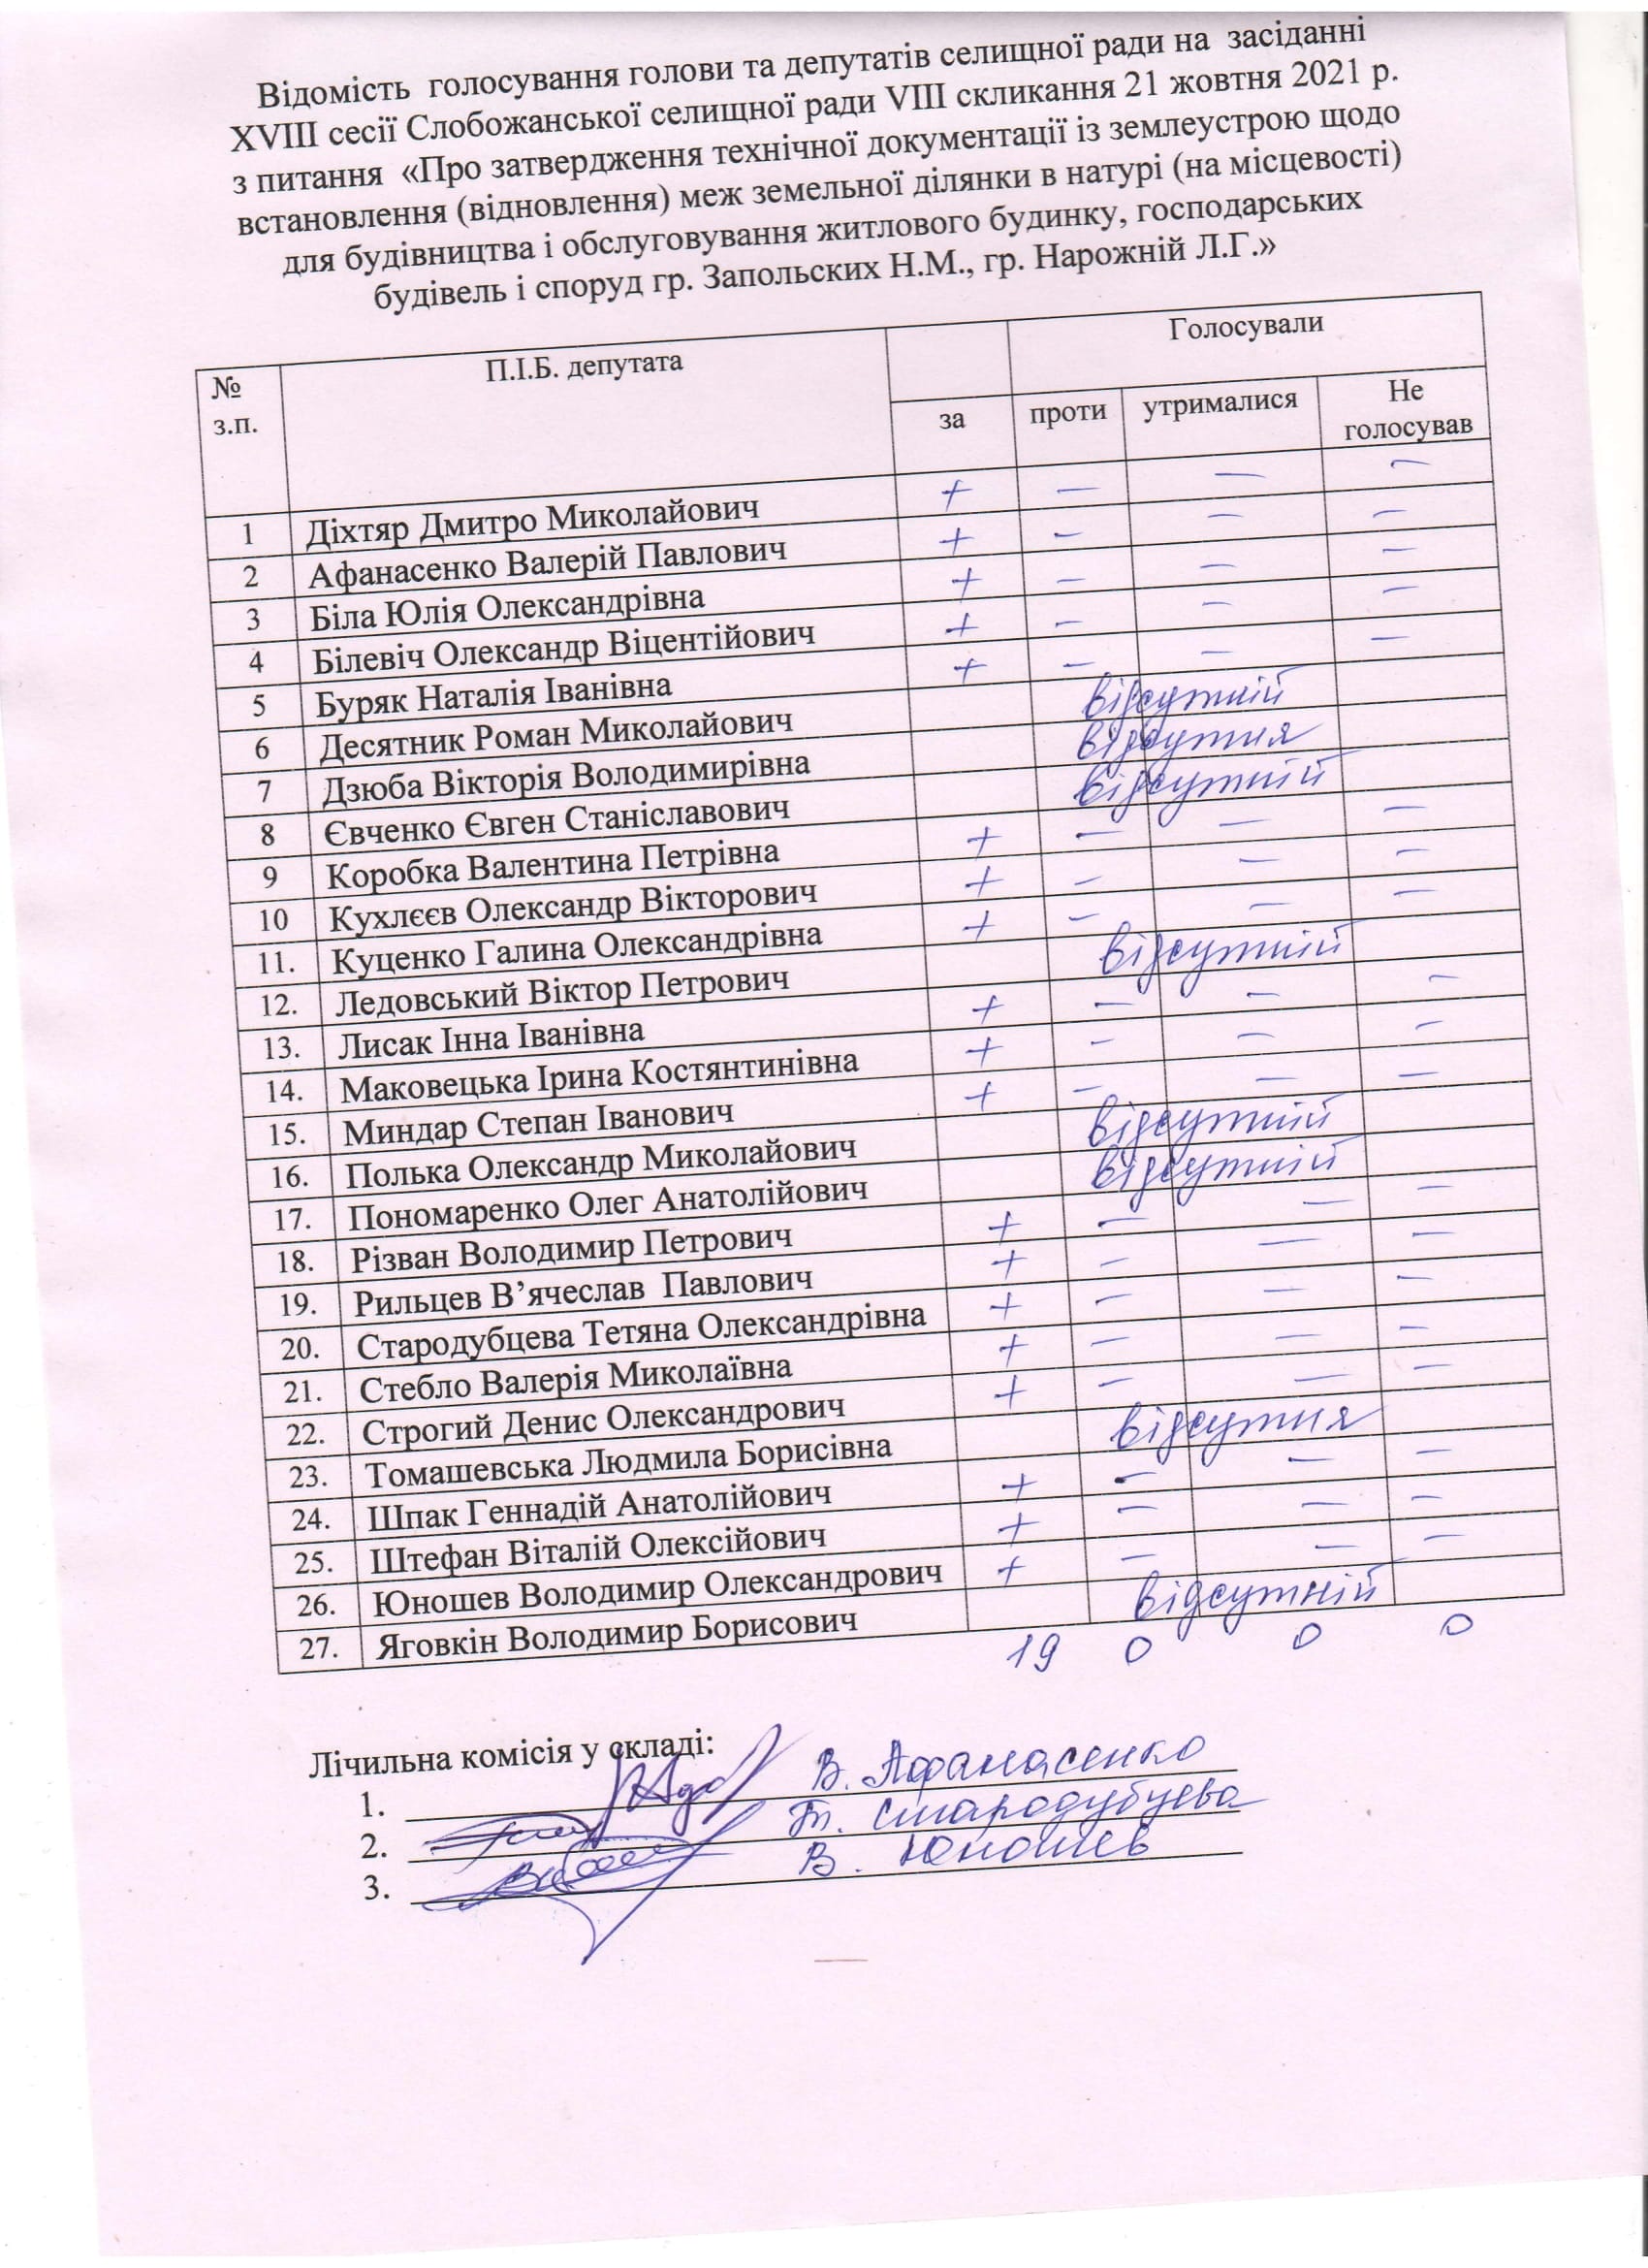 Відомість голосування голови та депутатів селищної ради на засіданні
XVIII сесії Слобожанської селищної ради VIII скликання 21 жовтня 2021 р.
з питання «Про затвердження технічної документації із землеустрою щодо
встановлення (відновлення) меж земельної ділянки в натурі (на місцевості)
для будівництва і обслуговування житлового будинку, господарських
будівель і споруд гр. Запольских Н.М., гр. Нарожній Л.Г.»
№ з.п. П.І.Б. депутата Голосували
за проти утрималися Не голосував
1 Діхтяр Дмитро Миколайович + – – –
2 Афанасенко Валерій Павлович + – – –
3 Біла Юлія Олександрівна + – – –
4 Білевіч Олександр Віцентійович + – – –
5 Буряк Наталія Іванівна + – – –
6 Десятник Роман Миколайович відсутній
7 Дзюба Вікторія Володимирівна відсутня
8 Євченко Євген Станіславович відсутній
9 Коробка Валентина Петрівна + – – –
10 Кухлєєв Олександр Вікторович + – – –
11. Куценко Галина Олександрівна + – – –
12. Ледовський Віктор Петрович відсутній
13. Лисак Інна Іванівна + – – –
14. Маковецька Ірина Костянтинівна + – – –
15. Миндар Степан Іванович + – – –
16. Полька Олександр Миколайович відсутній
17. Пономаренко Олег Анатолійович відсутній
18. Різван Володимир Петрович + – – –
19. Рильцев В’ячеслав Павлович + – – –
20. Стародубцева Тетяна Олександрівна + – – –
21. Стебло Валерія Миколаївна + – – –
22. Строгий Денис Олександрович + – – –
23. Томашевська Людмила Борисівна відсутня
24. Шпак Геннадій Анатолійович + – – –
25. Штефан Віталій Олексійович + – – –
26. Юношев Володимир Олександрович + – – –
27. Яговкін Володимир Борисович відсутній
19 0 0 0
Лічильна комісія у складі:
1. В. Афанасенко
2. Т. Стародубцева
3. В. Юношев